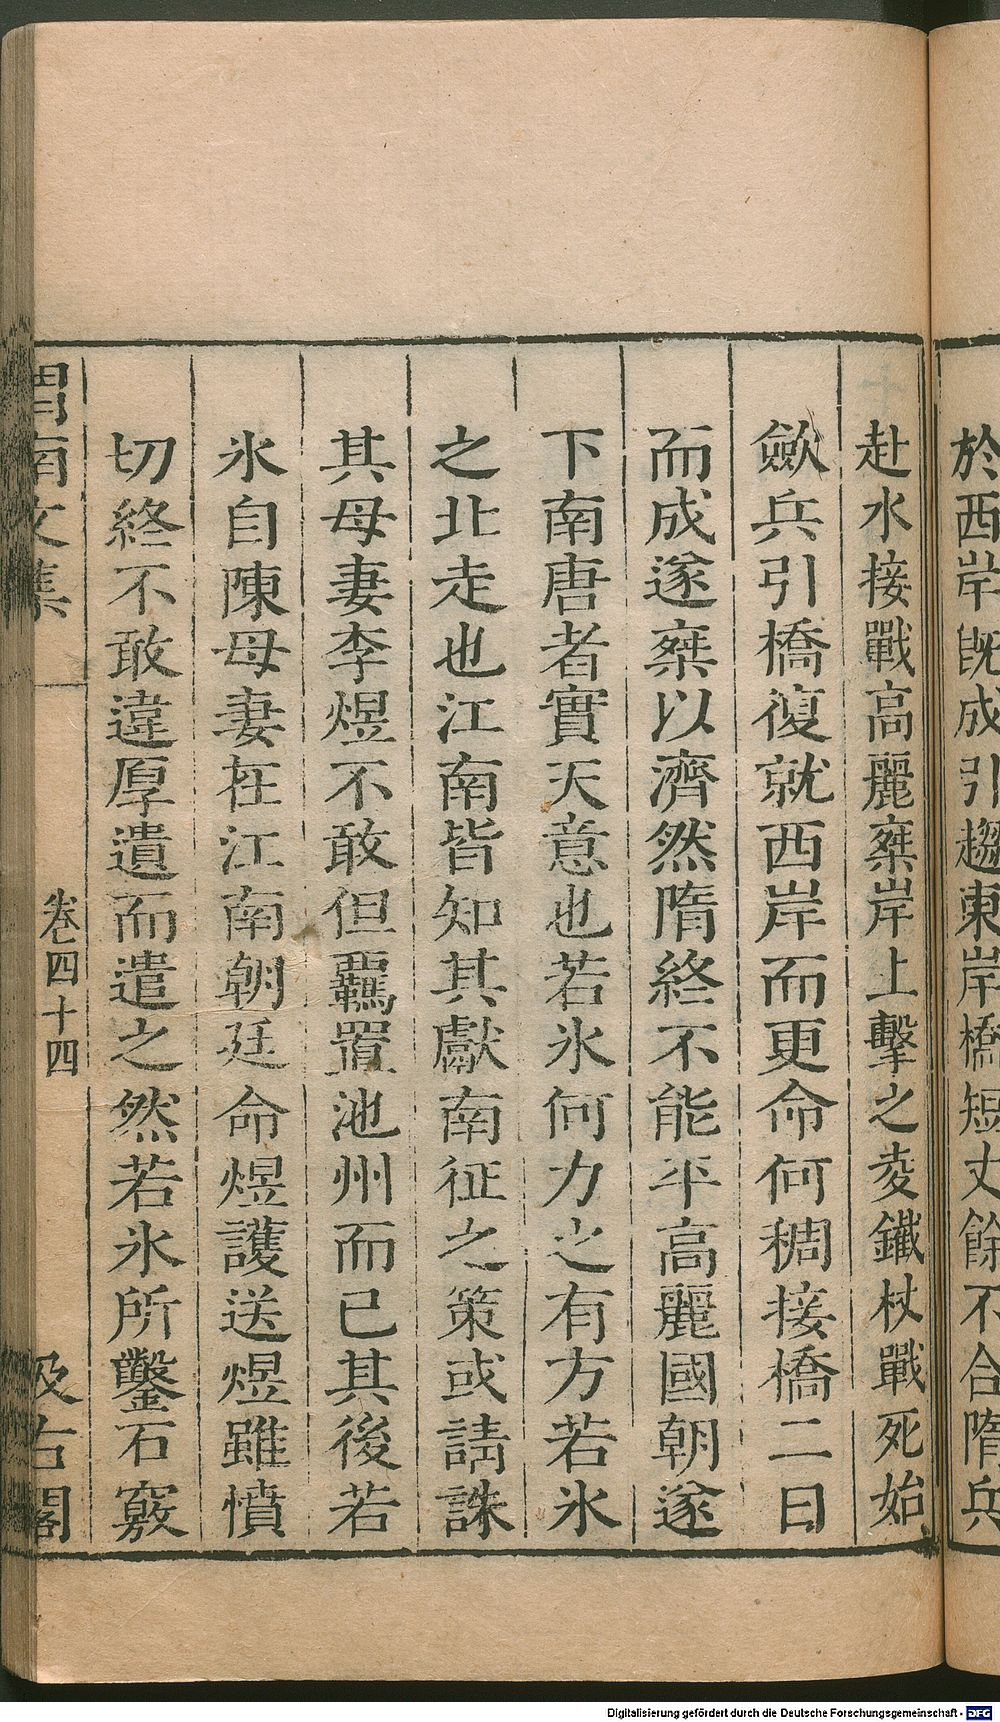 於西岸既成引趨東岸橋短丈餘不合隋兵
赴水接戰高麗椉岸上擊之夌鐵杖戰死始
斂兵引橋復就西岸而更命何稠接橋二日
而成遂椉以濟然隋終不能平高麗國朝遂
下南唐者實天意也若氷何力之有方若氷
之北走也江南皆知其獻南征之策或請誅
其母妻李煜不敢但羈置池州而已其後若
氷自陳母妻在江南朝廷命煜護送煜雖憤
切終不敢違厚遺而遣之然若氷所鑿石竅
渭南文集
卷四十四
汲古閣
Digitalisierung gefördert durch die Deutsche Forschungsgemeinschaft - DFG